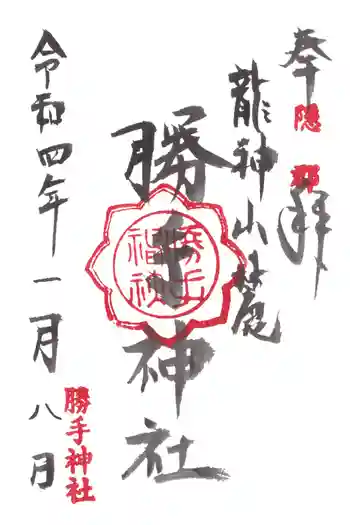 奉 隠 拝
龍神山麓
勝手神社
勝手神社
令和四年一月八日
勝手神社